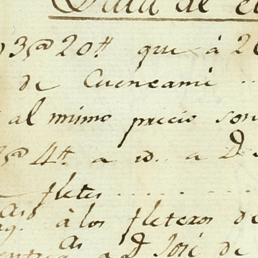 3@20tt que à 20
de Cuencamè
al mismo precio son
@ 4tt a id. a D
fletes
à los fleteros de
a D José de